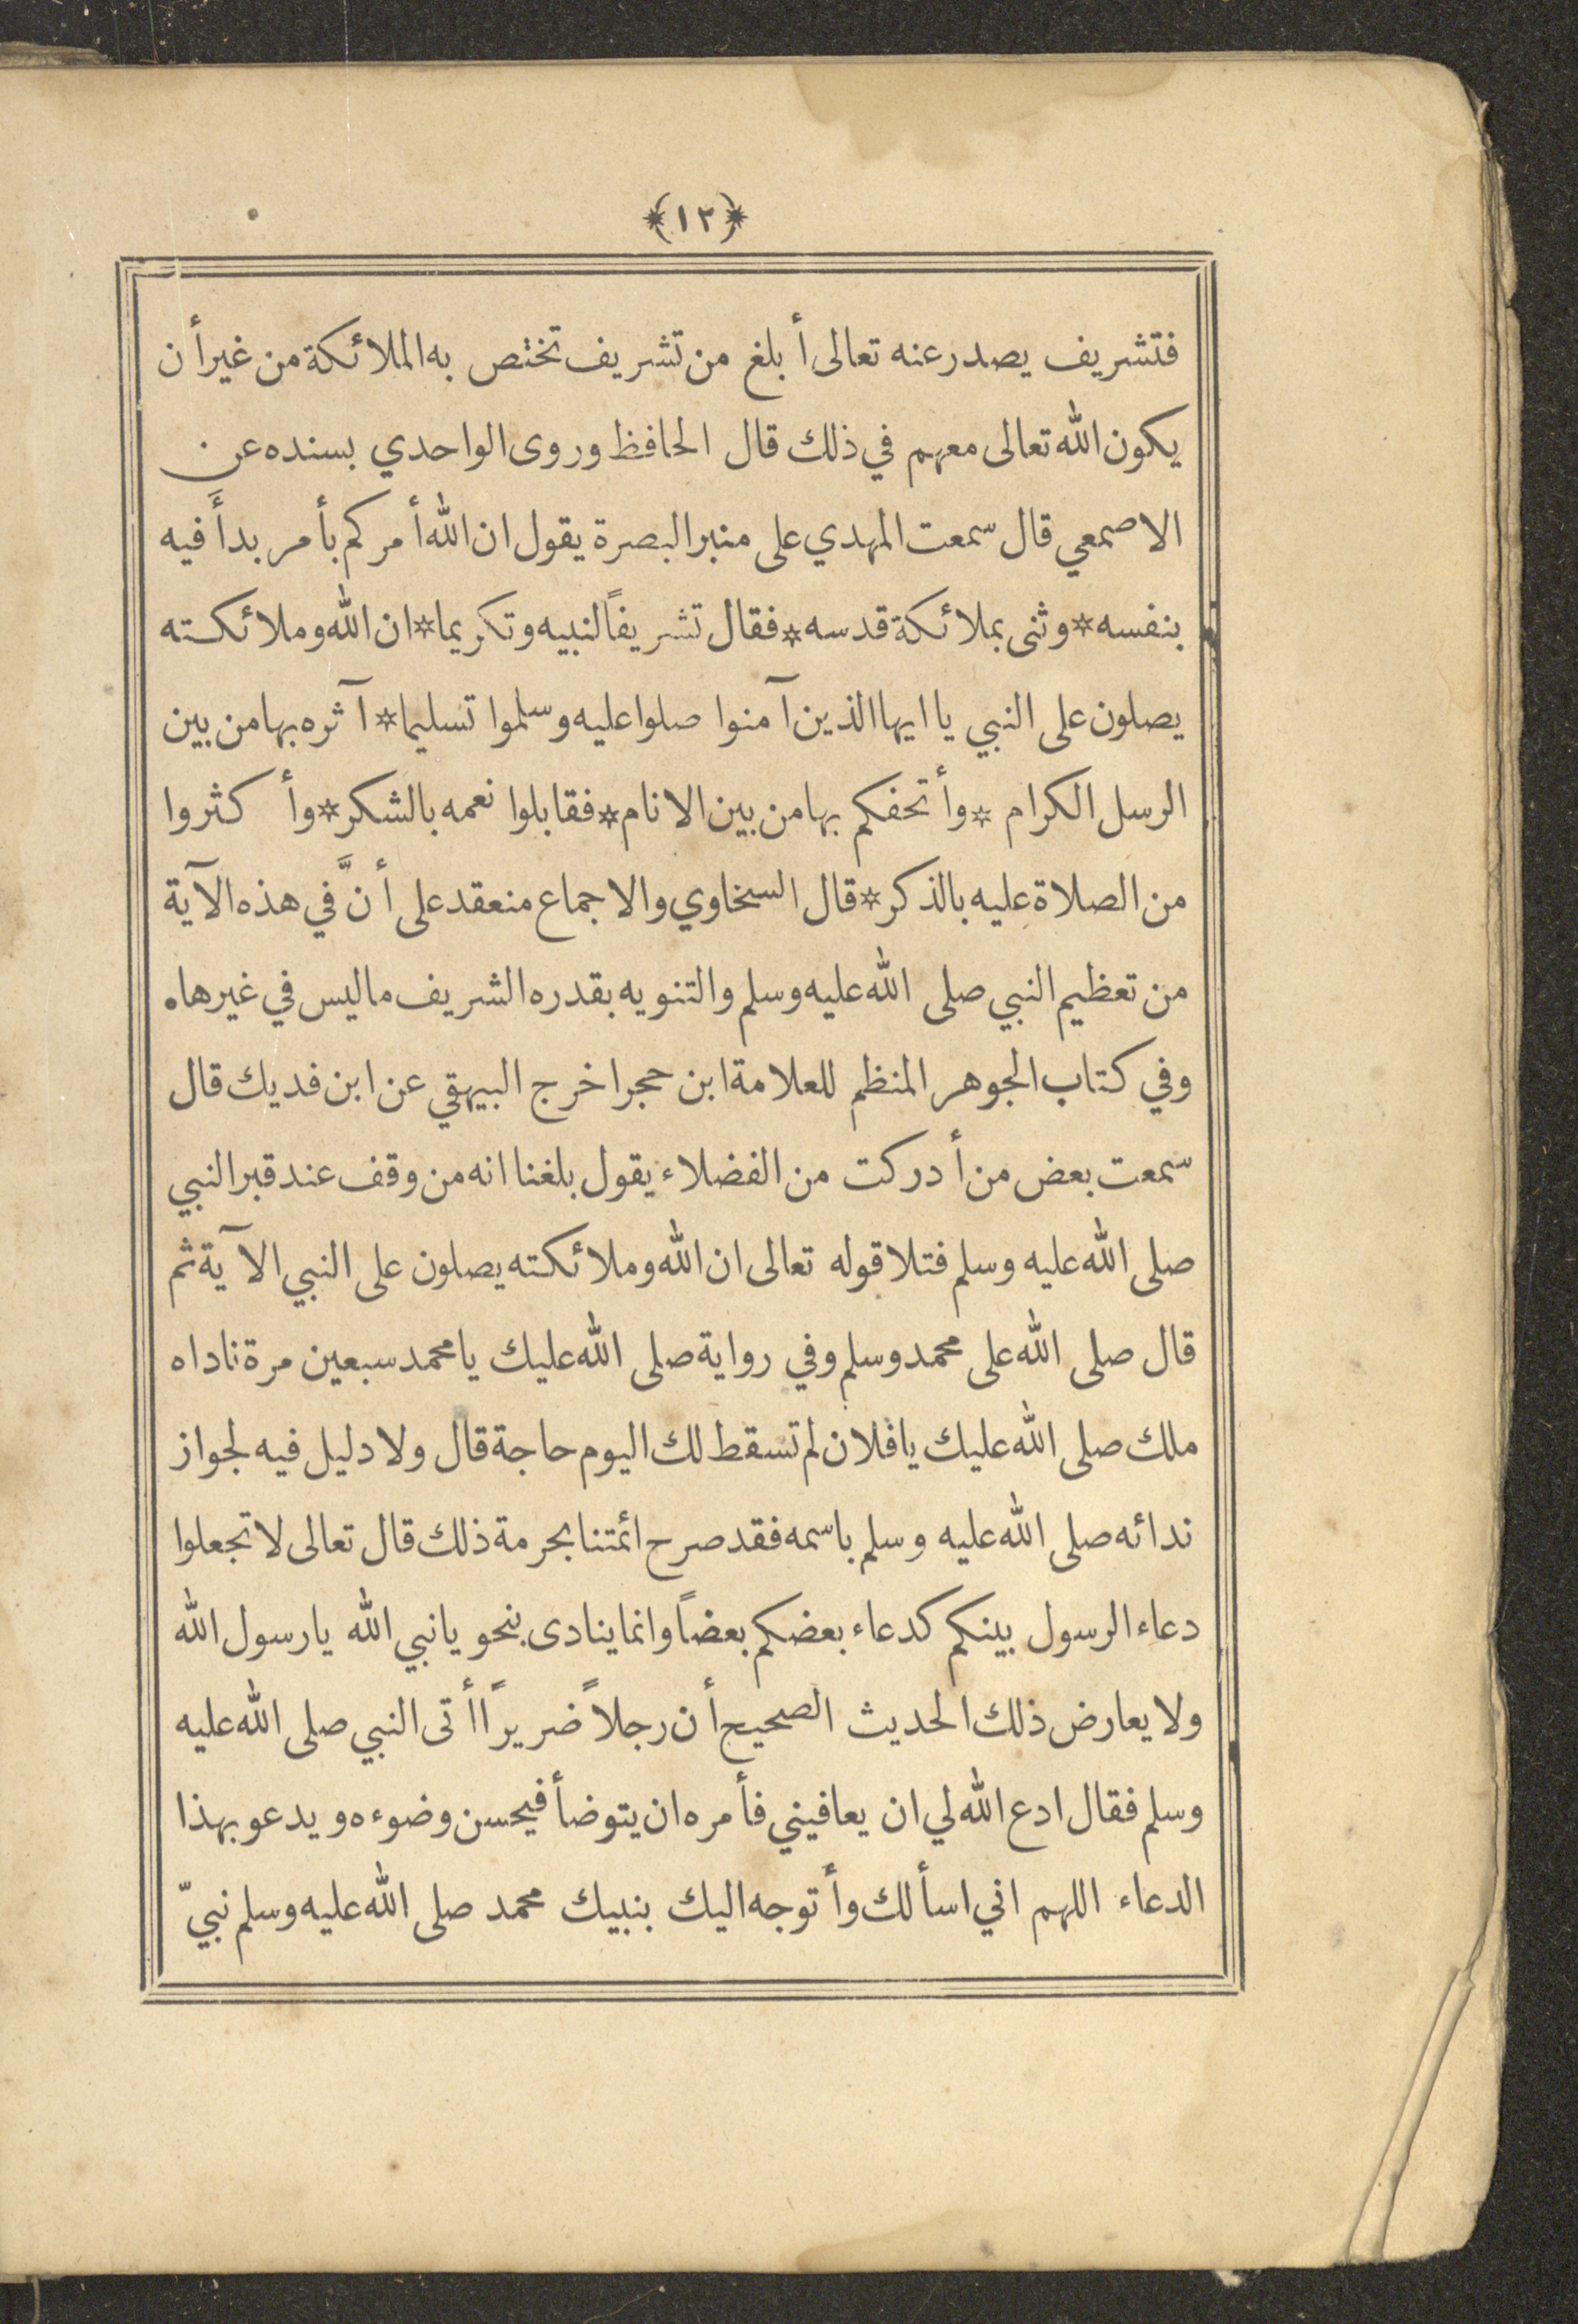 ﴿١٢﴾
فتشريف يصدر عنه تعالى أبلغ من تشريف تختص به الملائكة من غير أن
يكون الله تعالى معهم في ذلك قال الحافظ وروى الواحدي بسنده عن
الاصمعي قال سمعت المهدي على منبر البصرة يقول ان الله أمركم بأمر بدأَ فيه
بنفسه * وثنى بملائكة قدسه * فقال تشريفاً لنبيه وتكريما * ان الله وملائكته
يصلون على النبي يا ايها الذين آمنوا صلوا عليه وسلموا تسليما * آثره بها من بين
الرسل الكرام * وأتحفكم بها من بين الانام * فقابلوا نعمه بالشكر * وأكثروا
من الصلاة عليه بالذكر * قال السخاوي والاجماع منعقد على أنَّ في هذه الآية
من تعظيم النبي صلى الله عليه وسلم والتنويه بقدره الشريف ما ليس في غيرها ه
وفي كتاب الجوهر المنظم للعلامة ابن حجر اخرج البيهقي عن ابن فديك قال
سمعت بعض من أدركت من الفضلاء يقول بلغنا انه من وقف عند قبر النبي
صلى الله عليه وسلم فتلا قوله تعالى ان الله وملائكته يصلون على النبي الآية ثم
قال صلى الله على محمد وسلم وفي رواية صلى الله عليك يا محمد سبعين مرة ناداه
ملك صلى الله عليك يا فلان لم تسقط لك اليوم حاجة قال ولا دليل فيه لجواز
ندائه صلى الله عليه وسلم باسمه فقد صرح ائمتنا بحرمة ذلك قال تعالى لا تجعلوا
دعاء الرسول بينكم كدعاء بعضكم بعضاً وانما ينادى بنحو يا نبي الله يا رسول الله
ولا يعارض ذلك الحديث الصحيح أن رجلاً ضريراً أتى النبي صلى الله عليه
وسلم فقال ادع الله لي ان يعافيني فأمره ان يتوضأ فيحسن وضوءه ويدعو بهذا
الدعاء اللهم اني اسألك وأتوجه اليك بنبيك محمد صلى الله عليه وسلم نبيّ